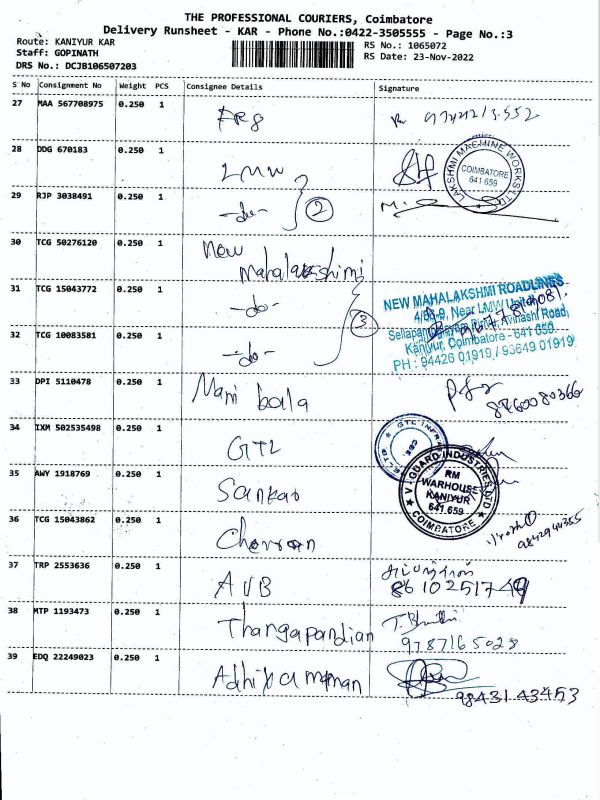 THE PROFESSIONAL COURIERS, Coimbatore
Delivery Runsheet - KAR - Phone No.:0422-3505555 - Page No.:3
Route: KANIYUR KAR
Staff: GOPINATH
DRS No.: DCJB106507203
RS No.: 1065072
RS Date: 23-Nov-2022
S No Consignment No Weight PCS Consignee Details Signature
27 MAA 567708975 0.250 1
28 DDG 670183 0.250 1 LMW
LAKSHMI MACHINE WORKS LTD
COIMBATORE
641 659
29 RJP 3038491 0.250 1 -do- 2
30 TCG 50276120 0.250 1 New
Mahalakshimi
31 TCG 15043772 0.250 1 -do-
3
NEW MAHALAKSHMI ROADLINES
4/86-9, Near LMW
Avinashi Road,
Kaniyur, Coimbatore - 641 659.
PH : 94426 01919 / 93649 01919
32 TCG 10083581 0.250 1 -do-
33 DPI 5110478 0.250 1 Mani bala 8760080366
34 IXM 502535498 0.250 1 GTL
35 AWY 1918769 0.250 1 Sankar
V-GUARD INDUSTRIES LTD
RM
WARHOUSE
KANIYUR
641 659
COIMBATORE
36 TCG 15043862 0.250 1
37 TRP 2553636 0.250 1 AVB
38 MTP 1193473 0.250 1 Thangapandian
9787165028
39 EDQ 22249023 0.250 1
9843143453